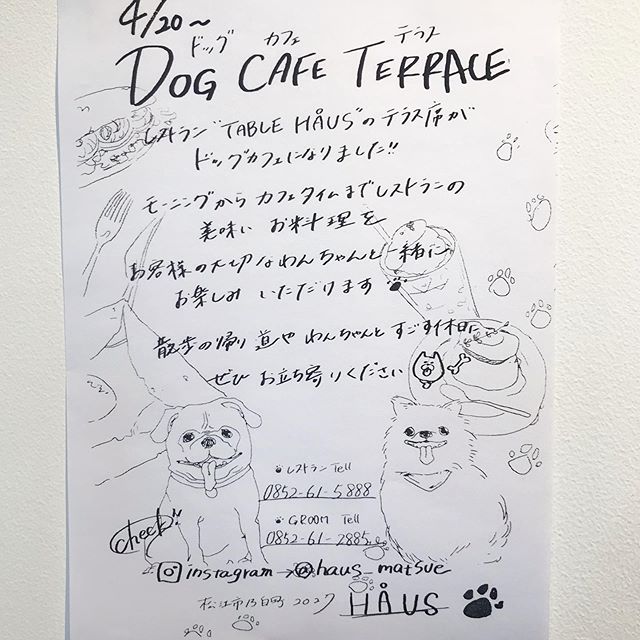 4/20～
ドッグ カフェ テラス
DOG CAFE TERRACE
レストラン"TABLE HÅUS"の テラス席が
ドッグカフェになりました!!
モーニングから カフェタイムまでレストランの
美味い お料理を
お客様の大切なわんちゃんと一緒に
お楽しみ いただけます
散歩の帰り道や わんちゃんと すごす休日に
ぜひ お立ち寄りください
レストラン Tell
0852-61-5888
GROOM Tell
0852-61-2885
check!!
instagram → @haus_matsue
松江市 町 2027 HÅUS